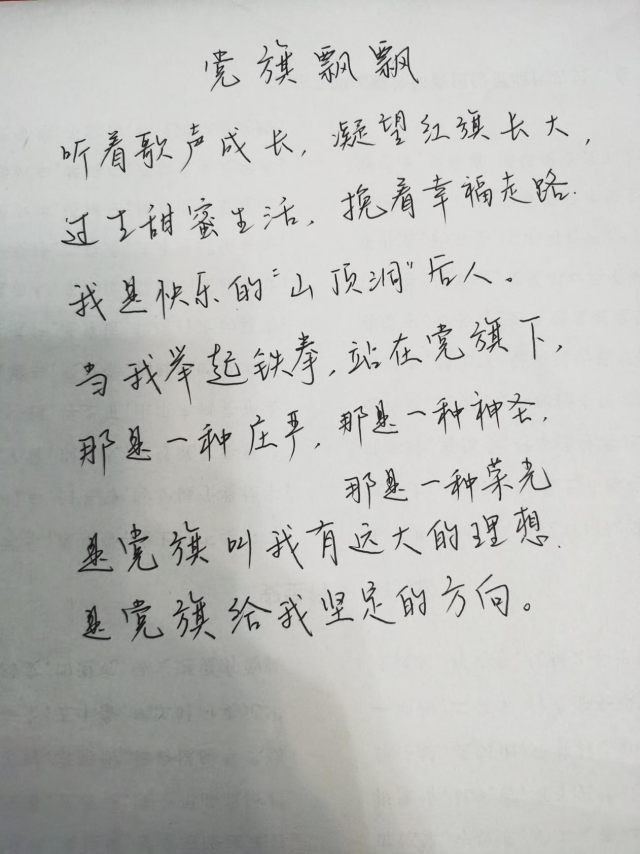 党旗飘飘
听着歌声成长，凝望红旗长大，
过着甜蜜生活，挽着幸福走路.
我是快乐的“山顶洞”后人。
当我举起铁拳，站在党旗下，
那是一种庄严，那是一种神圣，
那是一种荣光
是党旗叫我有远大的理想.
是党旗给我坚定的方向。